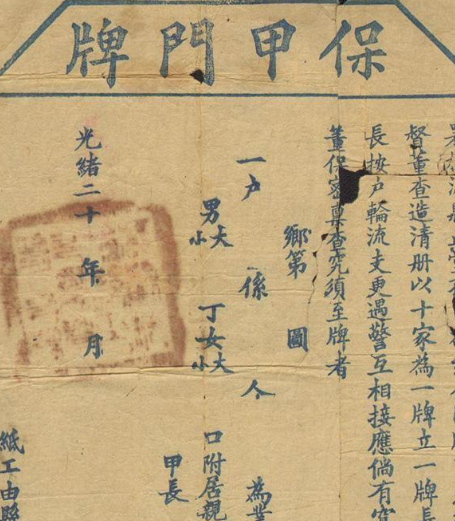 保甲門牌
督董查造清册以十家為一牌立一牌長
長按戶輪流支更遇警互相接應倘有窃
董保密稟查究須至牌者
鄉第 圖
一戶 係 人 為業
男大小 丁女大小 口附居親
甲長
光緒二十 年 月
紙工由縣